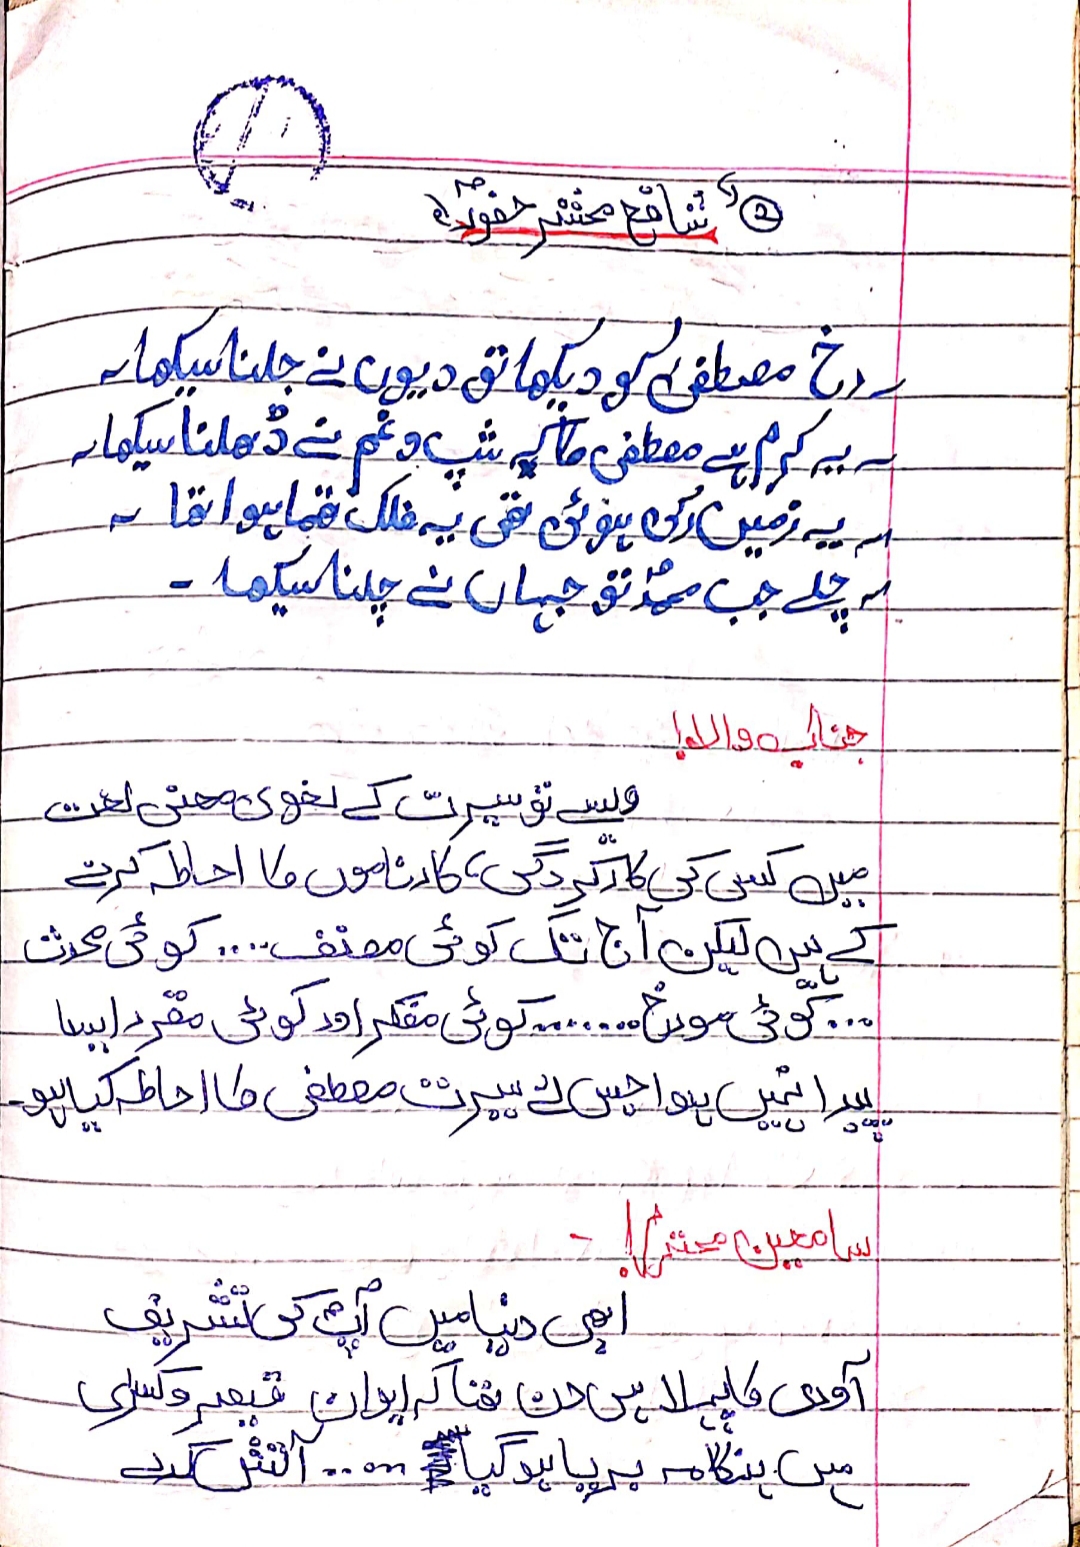 ② "شافع محشر حضورؐ"
رخِ مصطفیٰؐ کو دیکھا تو دیوں نے جلنا سیکھا
یہ کرم ہے مصطفی کا کہ شبِ و غم نے ڈھلنا سیکھا
یہ زمیں رکی ہوئی تھی یہ فلک تھما ہوا تھا
چلے جب محمدؐ تو جہاں نے چلنا سیکھا ۔
جناب والا!
ویسے تو سیرت کے لغوی معنی لغت
میں کسی کی کارکردگی، کارناموں کا احاطہ کرنے
کے ہیں لیکن آج تک کوئی مصنف .... کوئی محدث
... کوئی مورخ ....... کوئی مفکر اور کوئی مقرر ایسا
پیدا نہیں ہوا جس نے سیرت مصطفی کا احاطہ کیا ہو۔
سامعین محترم! -
ابھی دنیا میں آپؐ کی تشریف
آوری کا پہلا ہی دن تھا کہ ایوان قیصر و کسرٰی
میں ہنگامہ برپا ہو گیا ..... آتش کدے